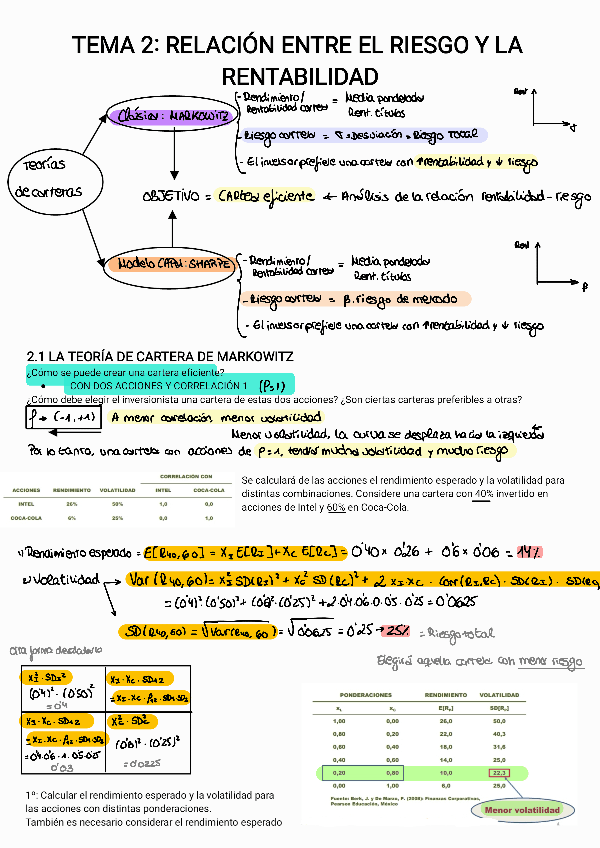 TEMA 2: RELACIÓN ENTRE EL RIESGO Y LA
RENTABILIDAD
Teorías
de carteras
Clásica: MARKOWITZ
- Rendimiento/
Rentabilidad cartera = Media ponderada
Rent. títulos
- Riesgo cartera = σ = Desviación = Riesgo TOTAL
- El inversor prefiere una cartera con ↑rentabilidad y ↓ riesgo
Rent
σ
OBJETIVO = CARTERA eficiente ← Análisis de la relación rentabilidad-riesgo
Modelo CAPM: SHARPE
- Rendimiento/
Rentabilidad cartera = Media ponderada
Rent. títulos
- Riesgo cartera = β. riesgo de mercado
- El inversor prefiere una cartera con ↑rentabilidad y ↓ riesgo
Rent
β
2.1 LA TEORÍA DE CARTERA DE MARKOWITZ
¿Cómo se puede crear una cartera eficiente?
• CON DOS ACCIONES Y CORRELACIÓN 1 (P=1)
¿Cómo debe elegir el inversionista una cartera de estas dos acciones? ¿Son ciertas carteras preferibles a otras?
P → (-1,+1) A menor correlación menor volatilidad
Menor volatilidad, la curva se desplaza hacia la izquierda
Por lo tanto, una cartera con acciones de P=1, tendrá mucha volatilidad y mucho riesgo
CORRELACIÓN CON
ACCIONES RENDIMIENTO VOLATILIDAD INTEL COCA-COLA
INTEL 26% 50% 1,0 0,0
COCA-COLA 6% 25% 0,0 1,0
Se calculará de las acciones el rendimiento esperado y la volatilidad para
distintas combinaciones. Considere una cartera con 40% invertido en
acciones de Intel y 60% en Coca-Cola.
1) Rendimiento esperado = E[R40,60] = XI E[RI] + XC E[RC] = 0'40 × 0'26 + 0'6 × 0'06 = 14%
2) Volatilidad → Var (R40,60) = XI² SD(RI)² + XC² SD(RC)² + 2 XI.XC . Corr(RI,RC) . SD(RI) . SD(RC)
= (0'4)² (0'50)² + (0'6)² . (0'25)² + 2.0'4.0'6.0.0'5.0'25 = 0'0625
SD(R40,60) = √Var(R40,60) = √0'0625 = 0'25 → 25% = Riesgo total
Otra forma de calcularlo
Elegirá aquella cartera con menor riesgo
X₁² . SD₁²
(0'4)² . (0'50)²
= 0'4
X₁ . X₂ . SD12
= X₁ . X₂ . P12 . SD1 . SD2
X₁ . X₂ . SD12
= X₁ . X₂ . P12 . SD1 . SD2
= 0'4.0'6.1.0'5.0'25
0'03
X₂² . SD₂²
(0'6)² . (0'25)²
= 0'0225
PONDERACIONES RENDIMIENTO VOLATILIDAD
x₁ x₂ E[Rₚ] SD[Rₚ]
1,00 0,00 26,0 50,0
0,80 0,20 22,0 40,3
0,60 0,40 18,0 31,6
0,40 0,60 14,0 25,0
0,20 0,80 10,0 22,3
0,00 1,00 6,0 25,0
Fuente: Berk, J. y De Marzo, P. (2008): Finanzas Corporativas,
Pearson Educación, México
Menor volatilidad
1º: Calcular el rendimiento esperado y la volatilidad para
las acciones con distintas ponderaciones.
También es necesario considerar el rendimiento esperado